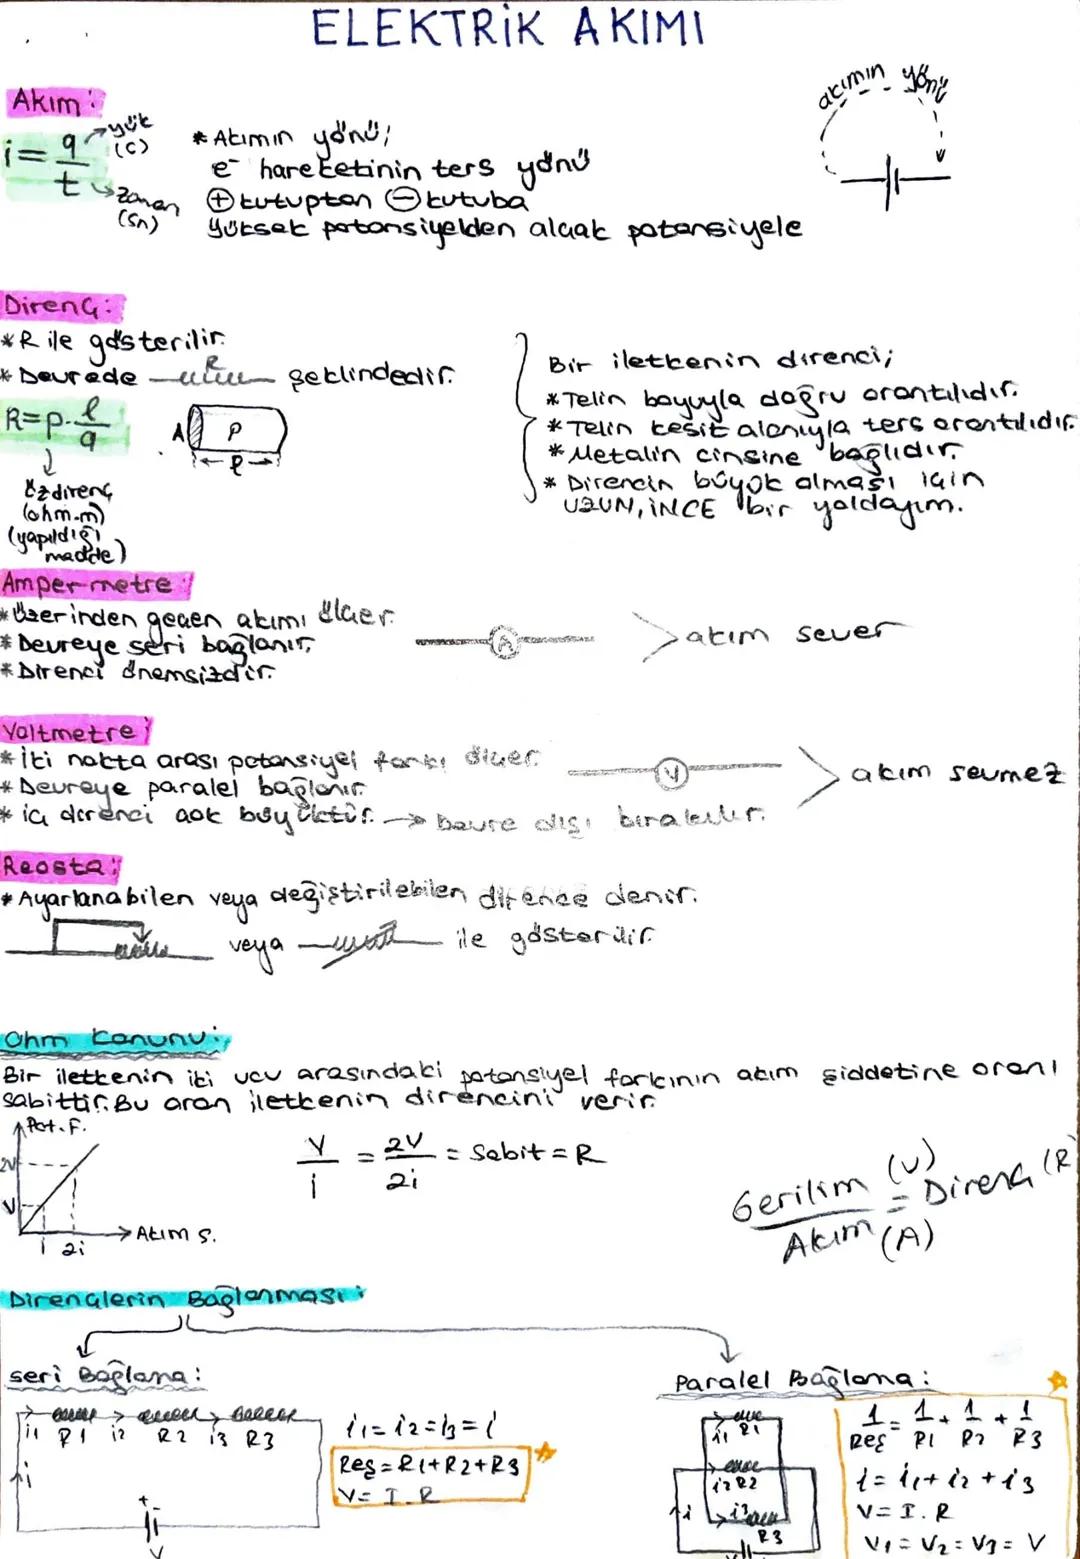 ELEKTRİK AKIMI
akımın yönü
Akım:
i = q/t
yük (C)
zaman (sn)
* Akımın yönü;
e⁻ hareketinin ters yönü
⊕ kutuptan ⊖ kutuba
Yüksek potansiyelden alçak potansiyele
Direnç:
* R ile gösterilir.
* Devrede R şeklindedir.
R = ρ.ℓ/q
A ρ ℓ
Özdirenç
(ohm.m)
(yapıldığı
madde)
Bir iletkenin direnci;
* Telin boyuyla doğru orantılıdır.
* Telin kesit alanıyla ters orantılıdır.
* Metalin cinsine bağlıdır.
* Direncin büyük olması için
UZUN, İNCE bir yoldayım.
Ampermetre:
* Üzerinden geçen akımı ölçer.
* Devreye seri bağlanır,
* Direnci önemsizdir.
A
akım sever
Voltmetre:
* İki nokta arası potansiyel farkı ölçer.
* Devreye paralel bağlanır
* iç direnci çok büyüktür. → Devre dışı bırakılır.
V
akım sevmez
Reosta:
* Ayarlanabilen veya değiştirilebilen dirence denir.
veya ile gösterilir.
Ohm Kanunu:
Bir iletkenin iki ucu arasındaki potansiyel farkının akım şiddetine oranı
sabittir. Bu oran iletkenin direncini verir.
Pot. F.
2V
V
i 2i
Akım ş.
V/i = 2V/2i = Sabit = R
Gerilim (V) / Akım (A) = Direnç (R
Dirençlerin Bağlanması:
seri Bağlama:
i1 R1 i2 R2 i3 R3
i
+ -
V
i1 = i2 = i3 = i
Reş = R1+R2+R3
V = I.R
Paralel Bağlama:
i1 R1
i2 R2
i3
R3
i
V
1/Reş = 1/R1 + 1/R2 + 1/R3
i = i1 + i2 + i3
V = I.R
V1 = V2 = V3 = V